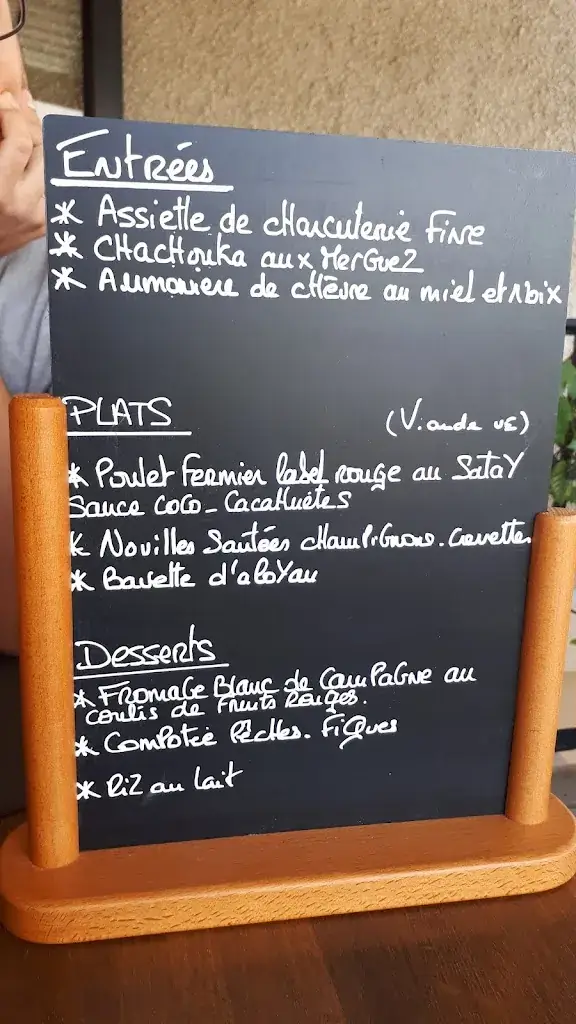 Entrées
* Assiette de charcuterie Fine
* Chachouka aux Merguez
* Aumonière de chèvre au miel et noix
PLATS (Viande UE)
* Poulet Fermier label rouge au Satay
Sauce coco - Cacahuètes
* Nouilles Sautées champignons - crevettes
* Bavette d'aloyau
Desserts
* Fromage Blanc de Campagne au
coulis de Fruits Rouges.
* Compotée Pêches - Figues
* Riz au lait